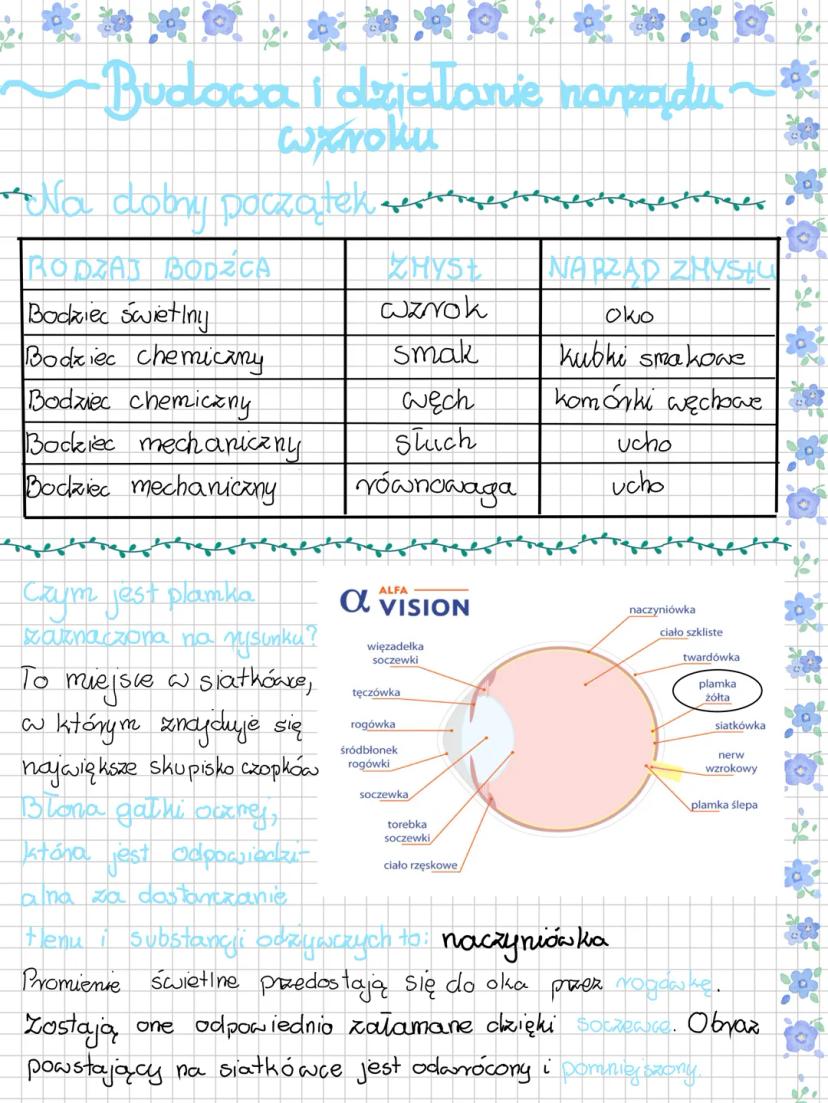 Budowa i działanie narządu
wzroku
Na dobry początek
RODZAJ BODŹCA ZMYSŁ NARZĄD ZMYSŁU
Bodziec świetlny wzrok oko
Bodziec chemiczny smak kubki smakowe
Bodziec chemiczny węch komórki węchowe
Bodziec mechaniczny słuch ucho
Bodziec mechaniczny równowaga ucho
Czym jest plamka
zaznaczona na rysunku?
To miejsce w siatkówce,
w którym znajduje się
największe skupisko czopków
Błona gałki ocznej,
która jest odpowiedzi-
alna za dostarczanie
tlenu i substancji odżywczych to: naczyniówka
α ALFA
VISION
więzadełka
soczewki
tęczówka
rogówka
śródbłonek
rogówki
soczewka
torebka
soczewki
ciało rzęskowe
naczyniówka
ciało szkliste
twardówka
plamka
żółta
siatkówka
nerw
wzrokowy
plamka ślepa
Promienie świetlne przedostają się do oka przez rogówkę.
Zostają one odpowiednio załamane dzięki soczewce. Obraz
powstający na siatkówce jest odwrócony i pomniejszony.